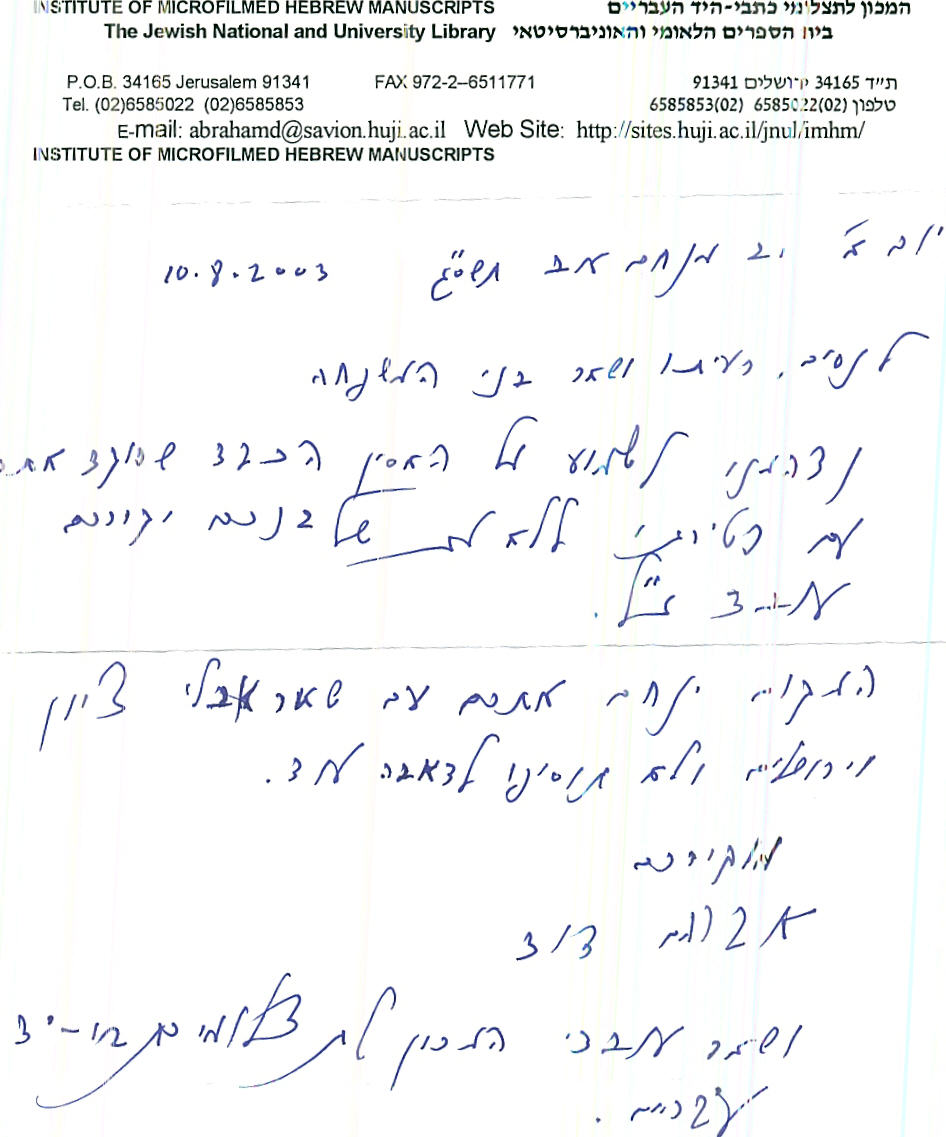 INSTITUTE OF MICROFILMED HEBREW MANUSCRIPTS המכון לתצלומי כתבי-היד העבריים
The Jewish National and University Library בית הספרים הלאומי והאוניברסיטאי
P.O.B. 34165 Jerusalem 91341 FAX 972-2--6511771 ת״ד 34165 ירושלים 91341
Tel. (02)6585022 (02)6585853 טלפון (02)6585022 (02)6585853
E-mail: abrahamd@savion.huji.ac.il Web Site: http://sites.huji.ac.il/jnul/imhm/
INSTITUTE OF MICROFILMED HEBREW MANUSCRIPTS
יום א' יב מנחם אב תשס"ג 10.8.2003
לנסים, רעיתו ושאר בני המשפחה
נדהמנו לשמוע על האסון הכבד שפקד אתכם
עם פטירתו ללא עת של בנכם יקירכם
ז"ל.
המקום ינחם אתכם עם שאר אבלי ציון
וירושלים ולא תוסיפו לדאבה עוד.
מוקירכם
אברהם דוד
ושאר עובדי המכון לתצלומי כתבי-יד
עבריים.